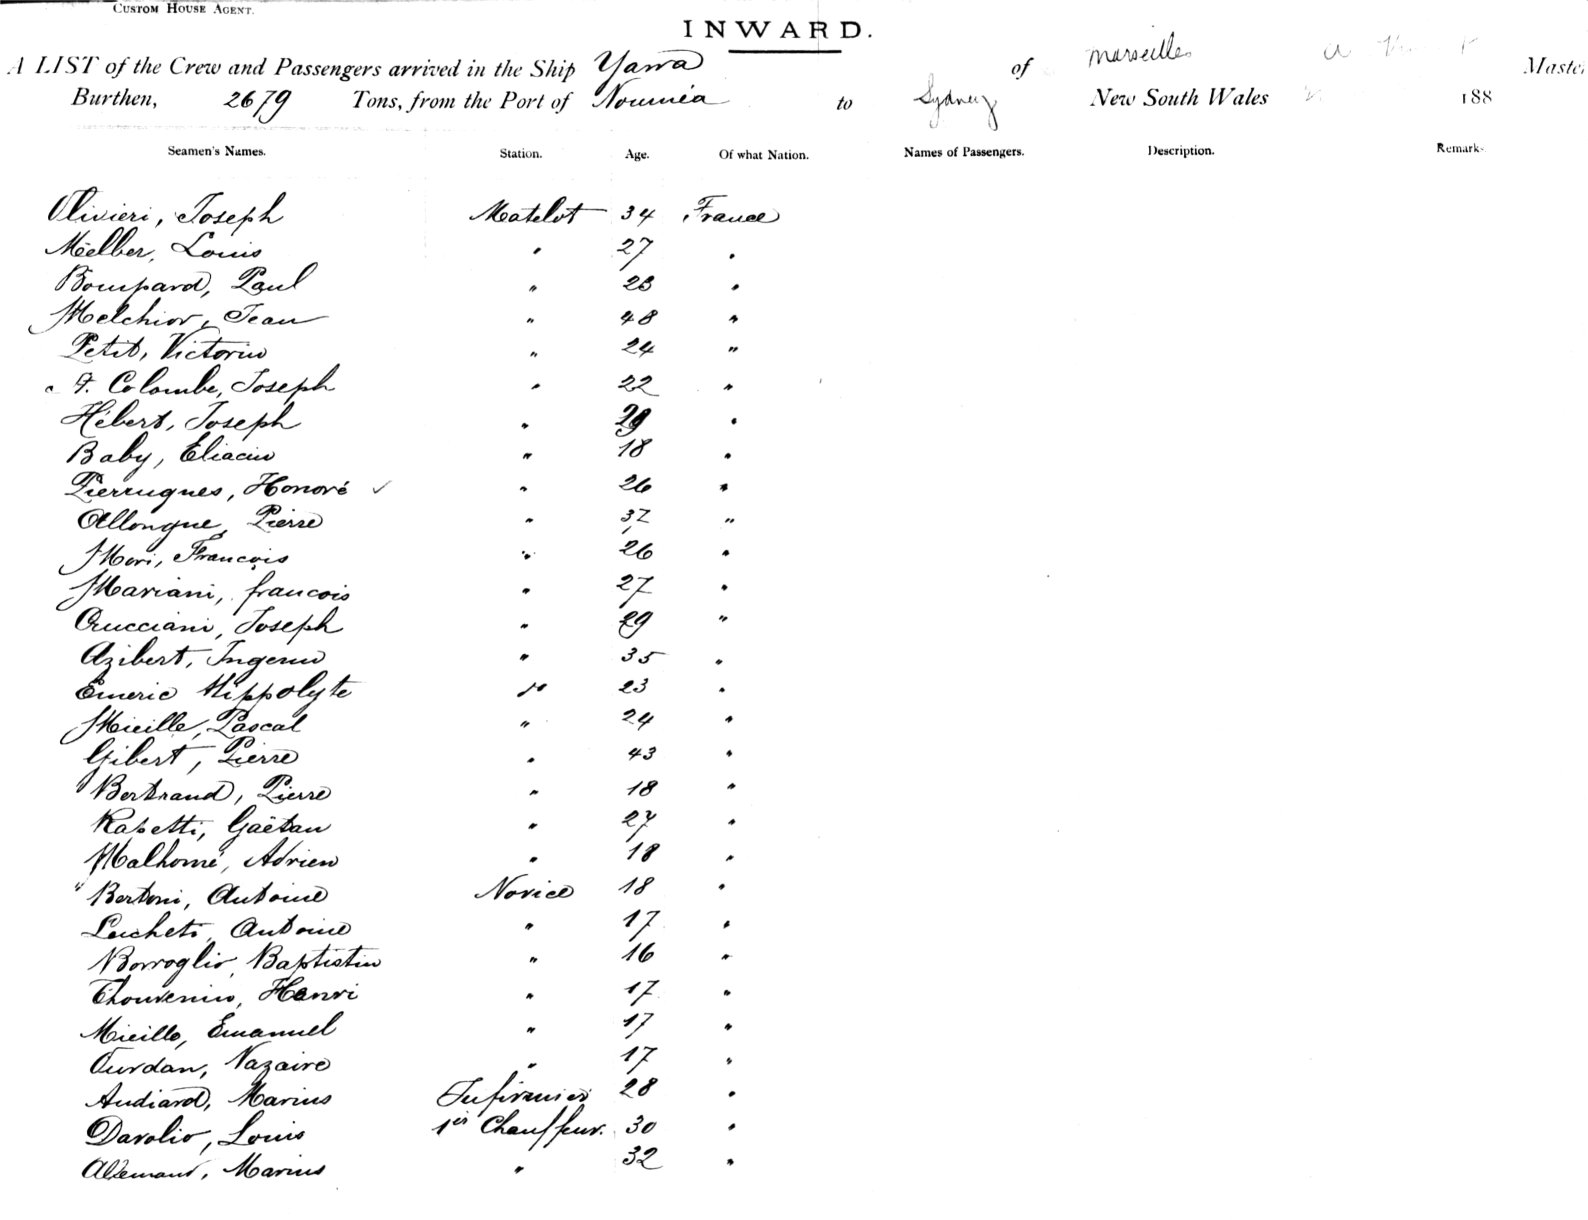 CUSTOM HOUSE AGENT.
INWARD.
A LIST of the Crew and Passengers arrived in the Ship Yarra of Marseilles Master
Burthen, 2679 Tons, from the Port of Nouméa to Sydney New South Wales 188
Seamen's Names. Station. Age. Of what Nation. Names of Passengers. Description. Remarks
Olivieri, Joseph Matelot 34 France
Melber, Louis " 27 "
Bompard, Paul " 23 "
Melchior, Jean " 48 "
Petit, Victorin " 24 "
Colombe, Joseph " 22 "
Hébert, Joseph " 29 "
Baby, Eliacin " 18 "
Pierrugues, Honoré " 26 "
Allongue, Pierre " 37 "
Mori, François " 26 "
Mariani, francois " 27 "
Crucciani, Joseph " 29 "
Azibert, Ingenu " 35 "
Emeric Hippolyte " 23 "
Mieille, Pascal " 24 "
Gibert, Pierre " 43 "
Bertrand, Pierre " 18 "
Rapetti, Gaëtan " 27 "
Malhomé, Adrien " 18 "
Bertoni, Antoine Novice 18 "
Luchets, Antoine " 17 "
Borroglio, Baptistin " 16 "
Thouvenin, Henri " 17 "
Mieille, Emanuel " 17 "
Ourdan, Nazaire " 17 "
Audiard, Marius Infirmier 28 "
Davolio, Louis 1er Chauffeur. 30 "
Allemand, Marius " 32 "